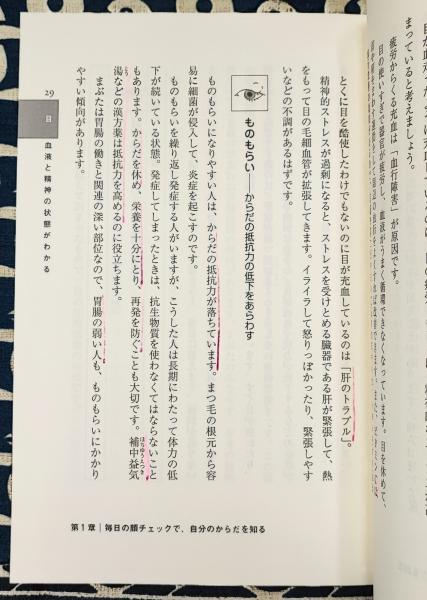 まっていると考えましょう。
疲労からくる充血は「血行障害」が原因です。
目の使いすぎで器官が疲労し、血液がうまく循環できなくなっています。目を休めて、
とくに目を酷使したわけでもないのに目が充血しているのは「肝のトラブル」。
精神的ストレスが過剰になると、ストレスを受けとめる臓器である肝が緊張して、熱
をもって目の毛細血管が拡張してきます。イライラして怒りっぽかったり、緊張しやす
いなどの不調があるはずです。
ものもらい──からだの抵抗力の低下をあらわす
ものもらいになりやすい人は、からだの抵抗力が落ちています。まつ毛の根元から容
易に細菌が侵入して、炎症を起こすのです。
ものもらいを繰り返し発症する人がいますが、こうした人は長期にわたって体力の低
下が続いている状態。発症してしまったときは、抗生物質を使わなくてはならないこと
もあります。からだを休め、栄養を十分にとり、再発を防ぐことも大切です。補中益気
湯などの漢方薬は抵抗力を高めるのに役立ちます。
まぶたは胃腸の働きと関連の深い部位なので、胃腸の弱い人も、ものもらいにかかり
やすい傾向があります。
29
目
血液と精神の状態がわかる
第1章│毎日の顔チェックで、自分のからだを知る